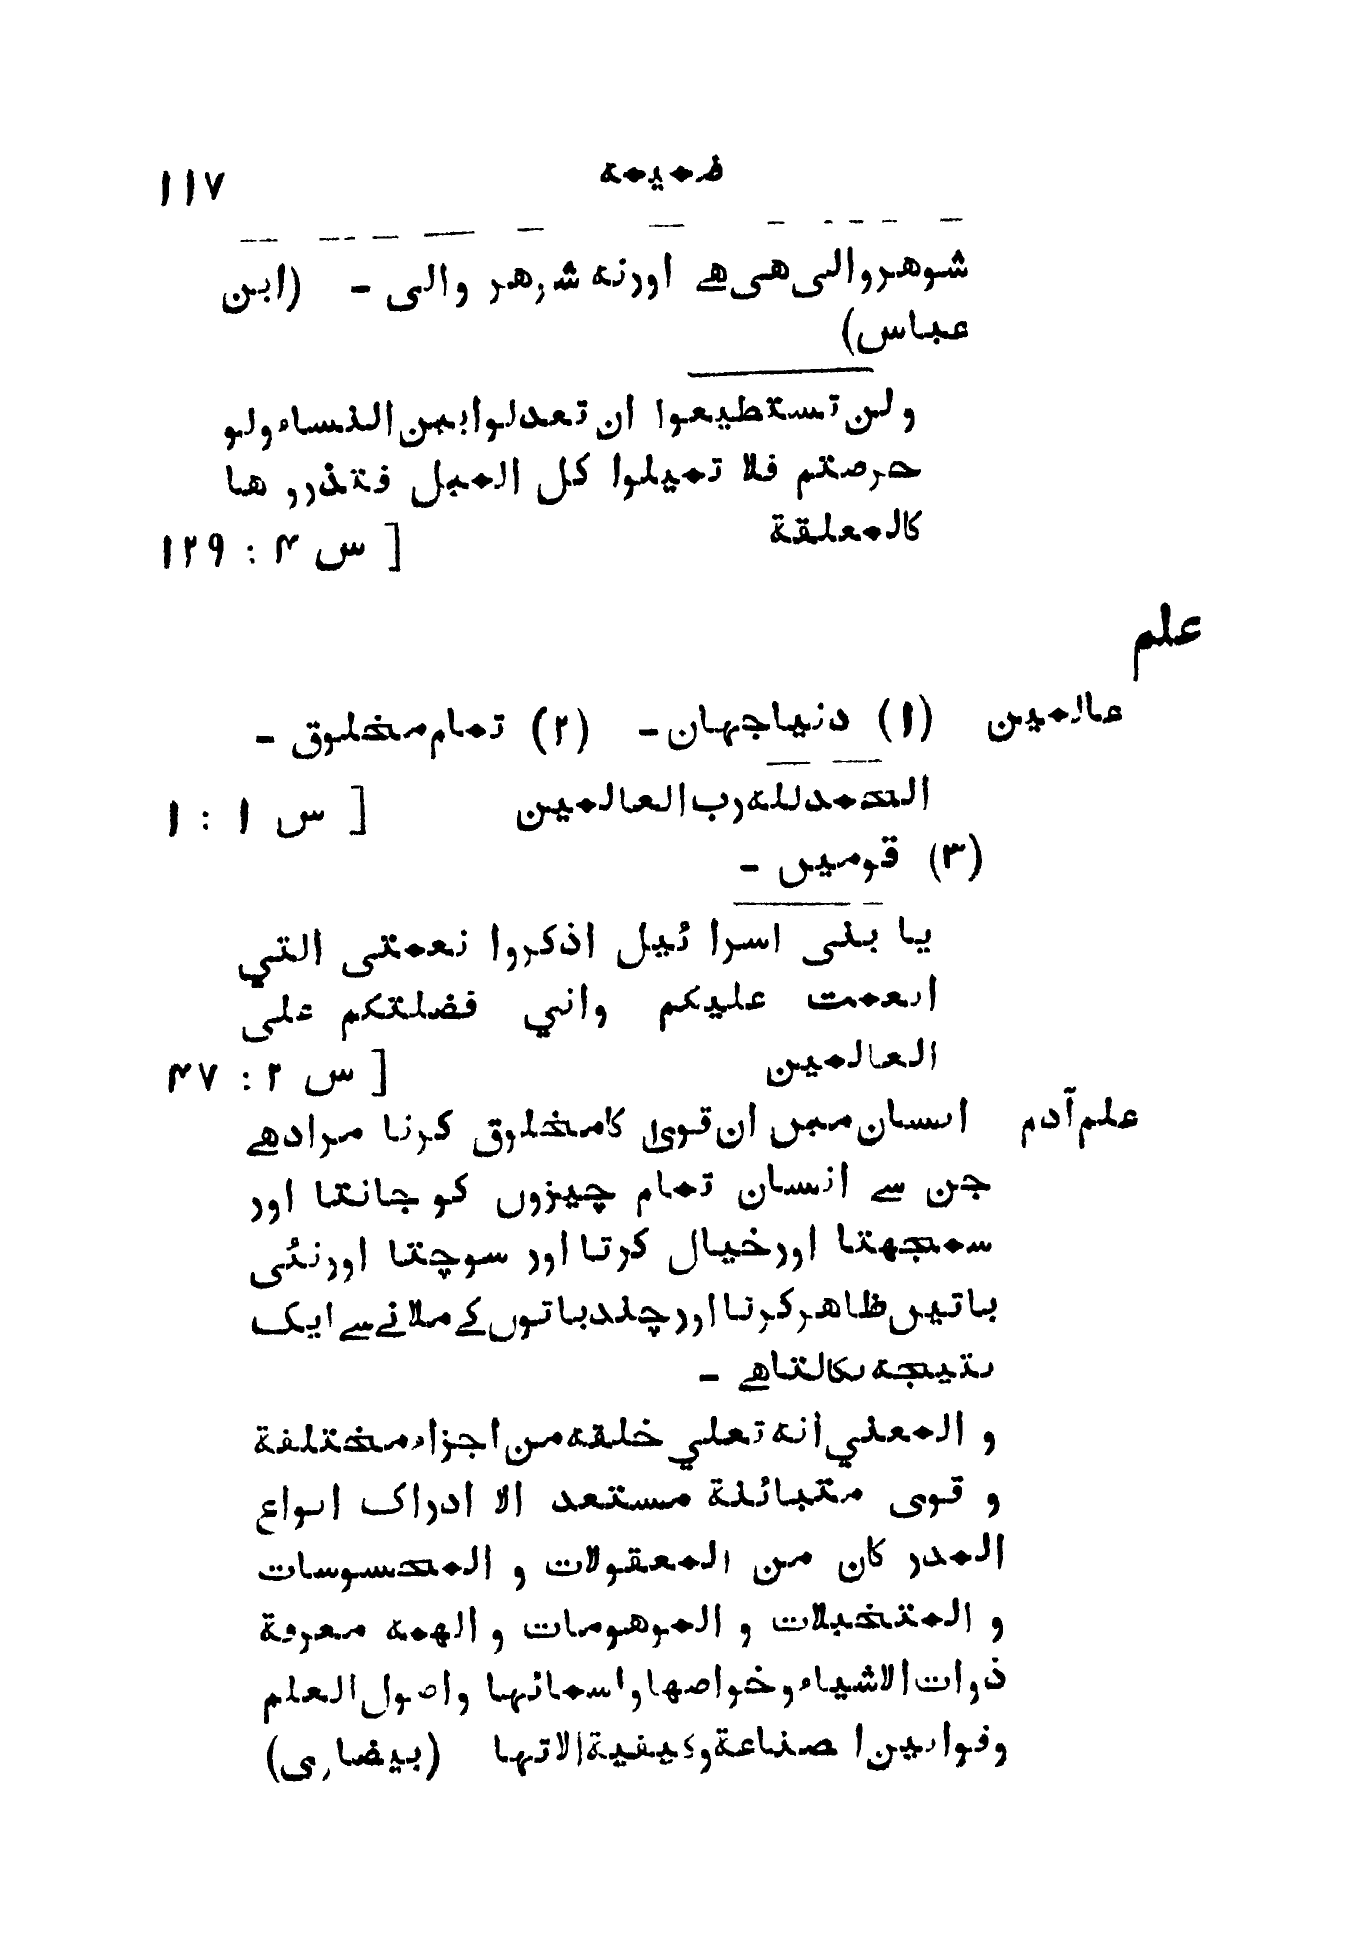 ضمیمہ ۱۱۷
شوهر والی هی هے اور نه شوهر والی - (ابن
عباس)
ولن تستطیعوا ان تعدلوا بین النساء ولو
حرصتم فلا تمیلوا کل المیل فتذرو ها
کالمعلقة [س ۴ : ۱۲۹
علم
عالمین (۱) دنیا جہان - (۲) تمام مخلوق -
الحمد لله رب العالمین [س ۱ : ۱
(۳) قومیں -
یا بنی اسرا ئیل اذکروا نعمتی التي
انعمت علیکم واني فضلتکم علی
العالمین [س ۲ : ۴۷
علم آدم انسان میں ان قویٰ کا مخلوق کرنا مراد هے
جن سے انسان تمام چیزوں کو جانتا اور
سمجهتا اور خیال کرتا اور سوچتا اور نئی
باتیں ظاهر کرنا اور چند باتوں کے ملانے سے ایک
نتیجه نکالتا هے -
و المعني انه تعلي خلقه من اجزاء مختلفة
و قوی متبائنة مستعد الا ادراک انواع
المدر کان من المعقولات و المحسوسات
و المتخیلات و الموهومات و الهمه معرفة
ذوات الاشیاء و خواصها و اسمائها و اصول العلم
وقوانین ا صناعة وکیفیة الاتها (بیضاری)